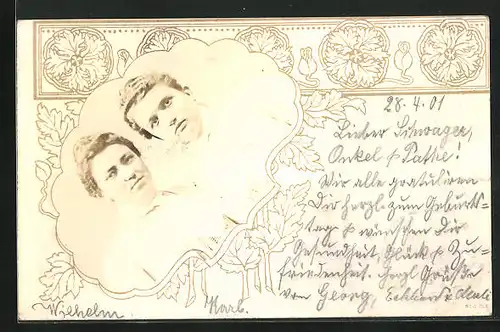 28.4.01
Lieber Schwager,
Onkel & Pathe!
Wir alle gratulieren
Dir herzl. zum Geburts-
tag & wünschen Dir
Gesundheit, Glück & Zu-
friedenheit. Herzl Grüße
von Georg,
Wilhelm